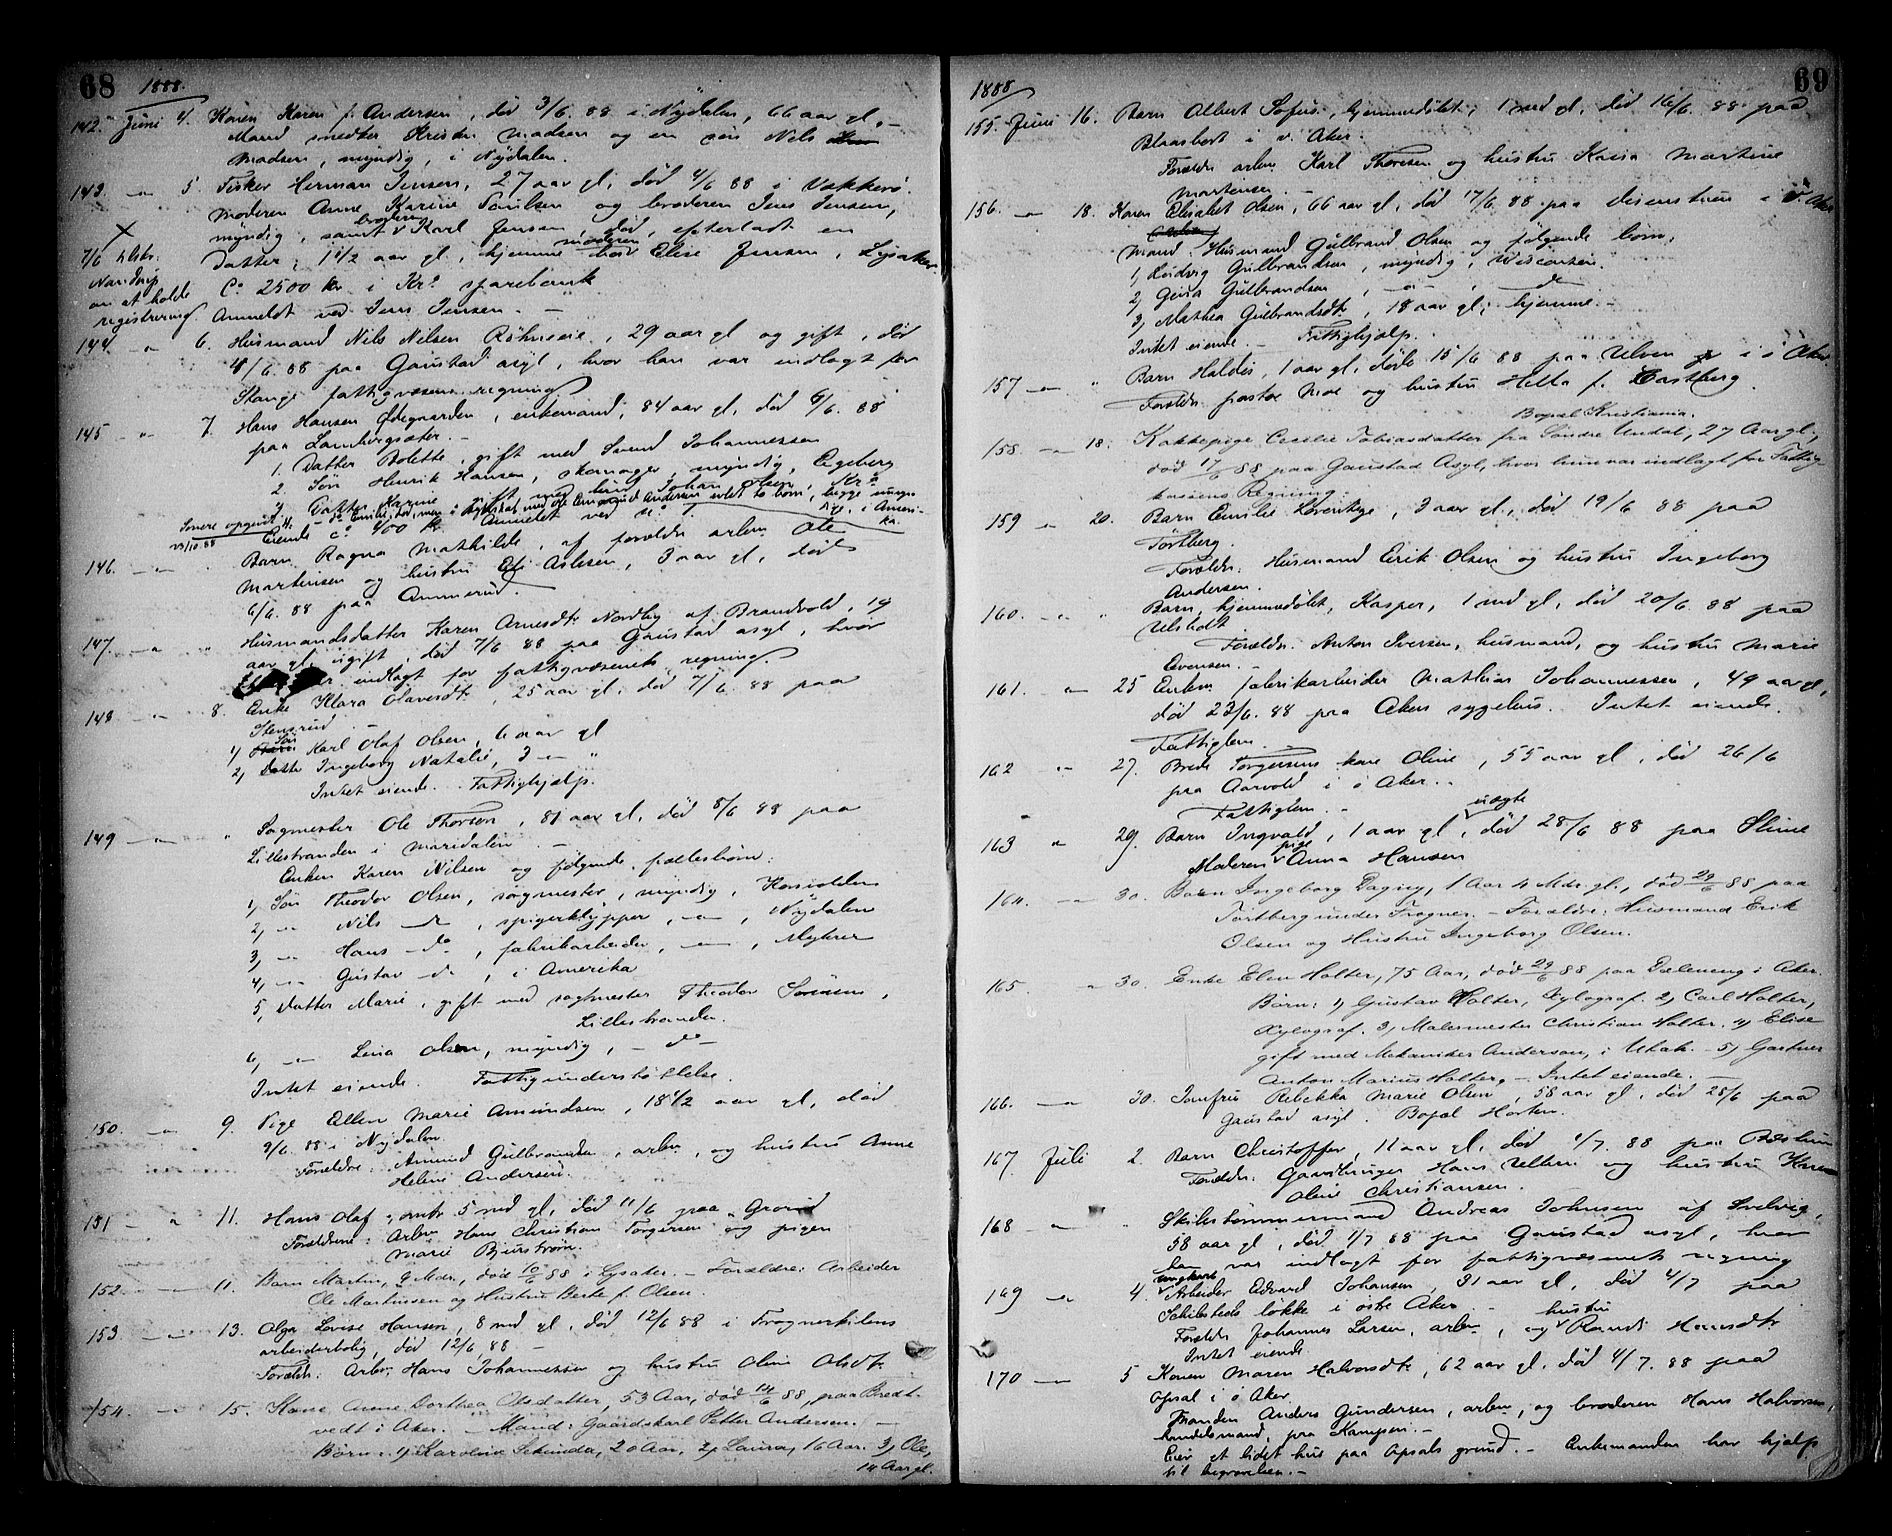 68
1888.
142. Juni 4. Konen Karen f. Andersen, død 3/6. 88 i Nydalen, 66 aar gl. –
Mand smedker Krister Madsen og en søn Nils
Madsen, myndig, i Nydalen.
143. – 5. Fisker Herman Jensen, 27 aar gl, død 4/6 88 i Vækkerø.
Moderen Anne Karine Paulsen og broderen Jens Jensen,
myndig, samt broderen Karl Jensen, død, efterladt en
Datter, 1 1/2 aar gl, hjemme hos moderen Elise Jensen, Lysaker
Co 2500 kr i Kra sparebank
Anmeldt ved Jens Jensen. –
7/6 tilst.
om at holde
registrering
144. – 6. Husmand Nils Nilsen Røhneeie, 29 aar gl og gift, død
4/6. 88 paa Gaustad asyl, hvor han var indlagt for
Stange fattigvæsens regning
145 – 7. Hans Hansen Ødegaarden, enkemand, 84 aar gl, død 6/6. 88
paa Lambergsæter. –
1. Datter Bolette, gift med Svend Johannessen
2. Søn Henrik Hansen, skomager, myndig, Egeberg
3, Datter Karine, gift med Johan Olsen Kra
Senere opgivet
23/10.88
Eiende co 400 kr. Anmeldt ved No 1.
146. – " Barn Ragna Mathilde, af forældre arbm Ole
Martinsen og hustru Eli Aslesen, 3 aar gl, død
6/6. 88 paa Ammerud.
147. – " Husmandsdatter Karen Arnesdtr Nordby af Brandvold, 19
aar gl, ugift, død 7/6 88 paa Gaustad asyl, hvor
indlagt for fattigvæsenets regning.
148 – 8. Enke Klara Olavesdtr, 25 aar gl, død 7/6. 88 paa
Stensrud.
1) Søn Karl Olaf Olsen, 6 aar gl
2, Datter Ingeborg Natalie, 3 – "
Intet eiende. Fattighjælp.
149 – " Sagmester Ole Thorsen, 81 aar gl, død 8/6 88 paa
Lillestranden i Maridalen. –
Enken Karen Nilsen og følgende fællesbørn:
1, Søn Theodor Olsen, sagmester, myndig,
2, – Nils – , spigerklypper, – , Nydalen
3, – Hans – do , fabrikarbeider, – , Myhrer
4, – Gustav – do , i Amerika
5, Datter Marie, gift med sagmester Theodor Sørensen,
Lillestranden.
6, – Lina Olsen, myndig, – do –
Intet eiende. Fattigunderstøttelse.
150. – 9. Pige Ellen Marie Amundsen, 18 1/2 aar gl, død
9/6. 88 i Nydalen.
Forældre: Amund Gulbrandsen, arbm, og hustru Anne
Helene Andersen.
151 – 11. Hans Olaf, omtr 5 md gl, død 11/6 paa Grorud
Forældrene: Arbm Hans Christian Torgersen og pigen
Marie Bjurstrøm.
152. – 11. Barn Martin, 9 Mdr., død 10/6 88 i Lysaker. – Forældre: Arbeider
Ole Martinsen og Hustru Berte f. Olsen.
153 – 13. Olga Lovise Hansen, 8 md gl, død 12/6 88 i Frognerkilens
arbeiderbolig, død 12/6 88 –
Forældr: Arbm Hans Johannessen og hustru Oline Olsdtr.
154. – 15. Kone Anne Dorthea Olsdatter, 53 Aar, død 14/6 88, paa Bredt-
vedt i Aker. – Mand: Gaardskarl Petter Andersen. –
Børn: 1, Karoline Sekunda, 20 Aar, 2, Laura, 16 Aar. 3, Ole,
14 Aar gl.
69
1888
155. Juni 16. Barn Albert Sofus, hjemmedøbt, 1 md gl, død 16/6. 88 paa
Blaasbert i v. Aker.
Forældr arbm Karl Thoresen og hustru Kaisa Martine
Martensen. –
156. – 18. Konen Elisabet Olsen, 66 aar gl, død 17/6. 88 paa Disenstuen i V. Aker
Mand: Husmand Gulbrand Olsen og følgende børn,
1, Ludvig Gulbrandsen, myndig, Wisconsin.
2, Gina Gulbrandsen, – , – do –
3, Mathea Gulbrandsdtr, 18 aar gl, hjemme. –
Intet eiende. – Fattighjælp.
157 – " Barn Haldis, 1 aar gl, døde 15/6 88 paa Ulven i ø. Aker.
Forældr pastor Moe og hustru Hella f. Castberg.
Bopæl Kristiania.
158. – 18. Kokkepige Cecilie Tobiasdatter fra Søndre Undal, 27 Aar gl.,
død 17/6 88 paa Gaustad Asyl, hvor hun var indlagt for Fattig-
kassens Regning.
159 – 20. Barn Emilie , 3 aar gl, død 19/6 88 paa
Tørtberg.
Forældr: Husmand Erik Olsen og hustru Ingeborg
Andersen.
160. – " Barn, hjemmedøbt, Kasper, 1 md gl, død 20/6. 88 paa
Ulstedt
Forældr: Anton Iversen, husmand, og hustru Marie
Evensen. –
161. – 25 Enkm fabrikarbeider Mathias Johannessen, 49 aar gl,
død 23/6. 88 paa Akers sygehus. Intet eiende.
Fattiglem. –
162 – 27. Brede Torgersens kone Oline, 55 aar gl, død 26/6
paa Aarvold i ø Aker. –
Fattiglem. –
163 – 29. Barn Ingvald, 1 aar gl, uægte død 28/6 88 paa Stine
Moderen pige Anna Hansen
164. – 30. Barn Ingeborg Dagny, 1 Aar 4 Mdr. gl., død 29/6 88 paa
Tørtberg under Frogner. – Forældre: Husmand Erik
Olsen og Hustru Ingeborg Olsen.
165. – 30. Enke Elen Holter, 75 Aar, død 29/6 88 paa Dæleneng i Aker.
Børn: 1, Gustav Holter, Xylograf. 2, Carl Holter,
Xylograf. 3, Malermester Christian Holter. 4, Elise
gift med Mekaniker Anderson, i Utah. – 5, Gartner
Anton Marius Holter. – Intet eiende. –
166. – 30. Jomfru Rebekka Marie Olsen, 58 aar gl, død 28/6 paa
Gaustad asyl. Bopæl Horten.
167. Juli 2. Barn Christoffer, 11 aar gl, død 1/7. 88 paa
Forældr: Gaardbruger Hans og hustru Karen
Oline Christiansen.
168 – " Skibstømmermand Andreas Johnsen af Svelvig,
58 aar gl, død 1/7 88 paa Gaustad asyl, hvor
han var indlagt for fattigvæsenets regning
169 – 4. ungkarl Arbeider Edvard Johansen, 31 aar gl, død 4/7 paa
Schilsteds løkke i østre Aker. –
Forældr Johannes Larsen, arbm, og hustru Randi Hansdtr
Intet eiende.
170 – 5 Konen Maren Halvorsdtr, 62 aar gl, død 4/7. 88 paa
Opsal i ø Aker
Manden Anders Gundersen, arbm, og broderen Hans Halvorsen,
handelsmand, paa Kampen. –
Eier et lidet hus paa Opsals grund. – Enkemanden har hjælp
til begravelsen. –